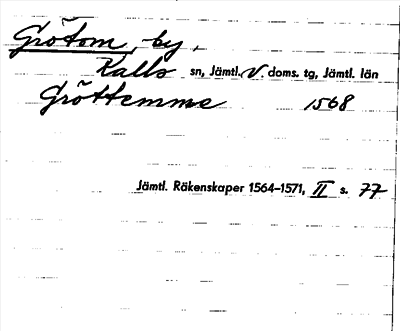 Grötom, by,
Kalls sn, Jämtl. V. doms. tg, Jämtl. län
Gröttemme 1568
Jämtl. Räkenskaper 1564–1571, II s. 77